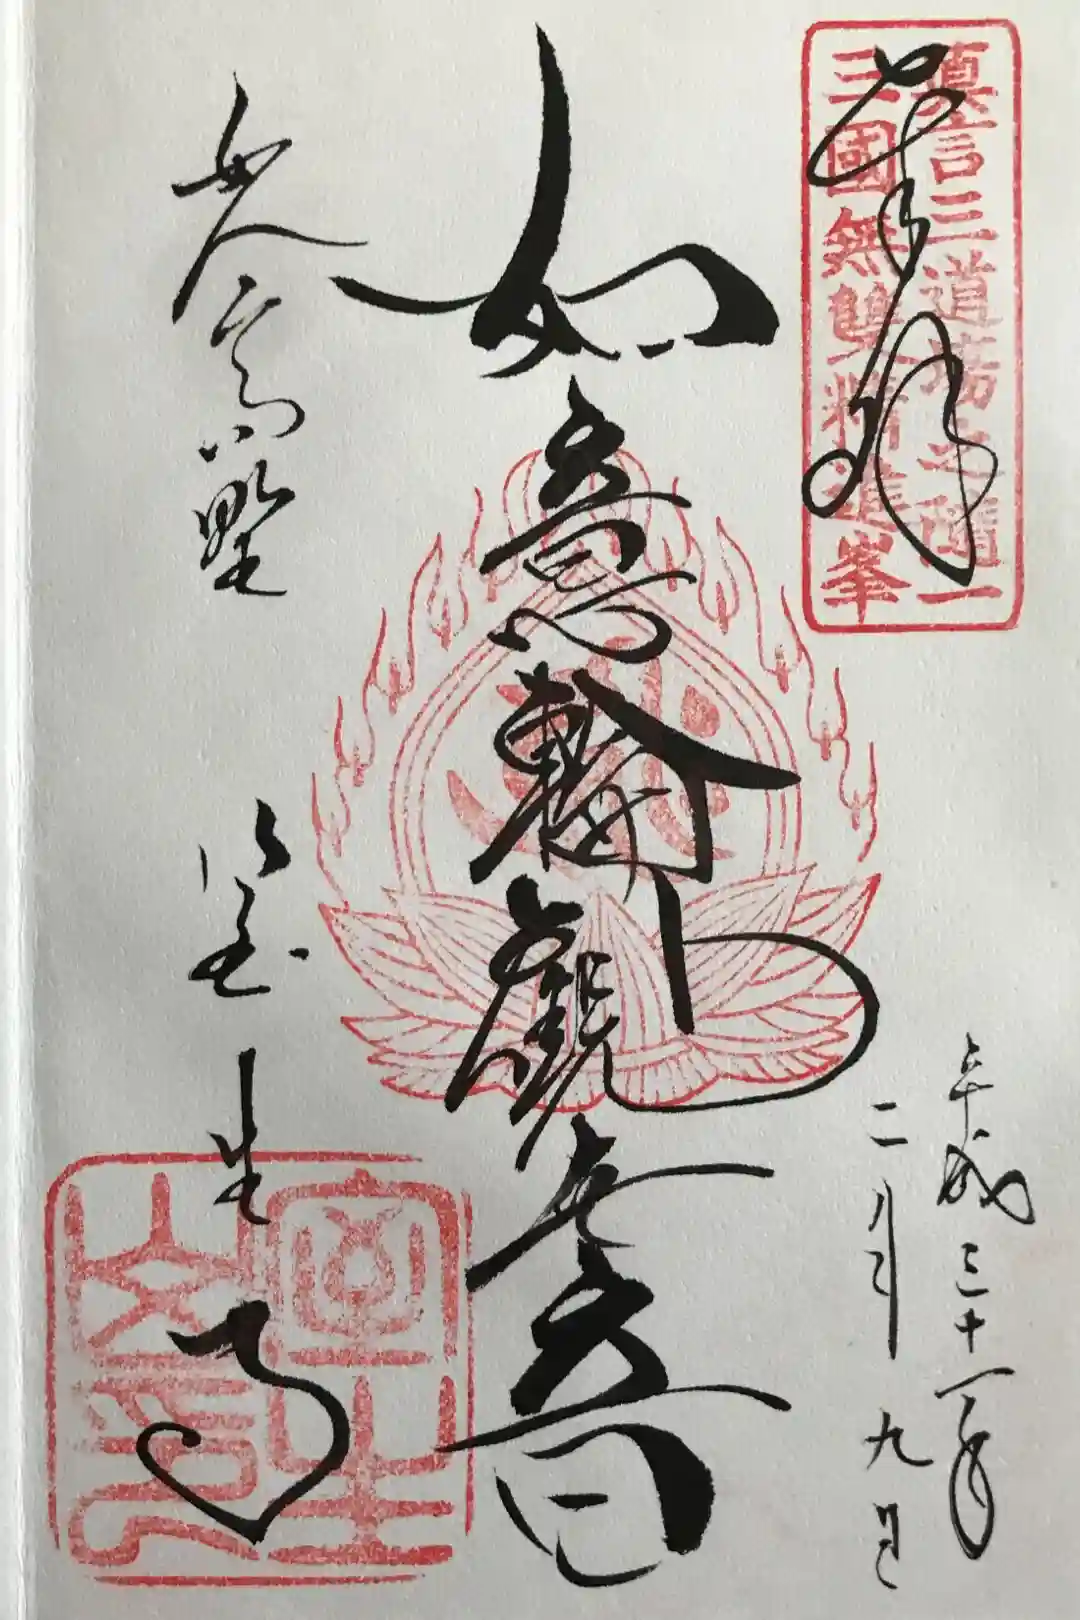 眞言三道場之隨一
三國無雙精進峯
奉拝
平成三十一年
二月九日
如意輪觀世音
女人高野 室生寺